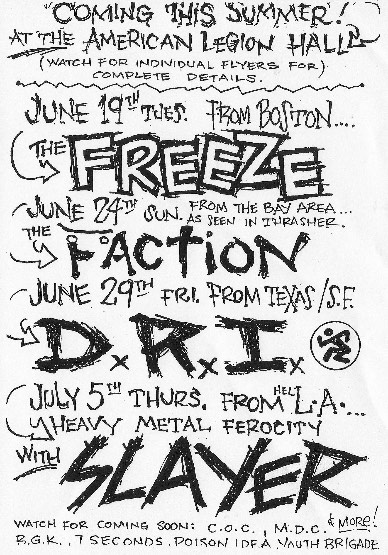 "COMING THIS SUMMER!"
AT THE AMERICAN LEGION HALL
(WATCH FOR INDIVIDUAL FLYERS FOR)
COMPLETE DETAILS.
JUNE 19TH TUES. FROM BOSTON....
THE FREEZE
JUNE 24TH SUN. FROM THE BAY AREA...
AS SEEN IN THRASHER.
THE FACTION
JUNE 29TH FRI. FROM TEXAS/S.F.
D.R.I.
JULY 5TH THURS. FROM HEL L.A....
HEAVY METAL FEROCITY
WITH SLAYER
WATCH FOR COMING SOON: C.O.C., M.D.C. & MORE!
R.G.K., 7 SECONDS, POISON IDEA, YOUTH BRIGADE